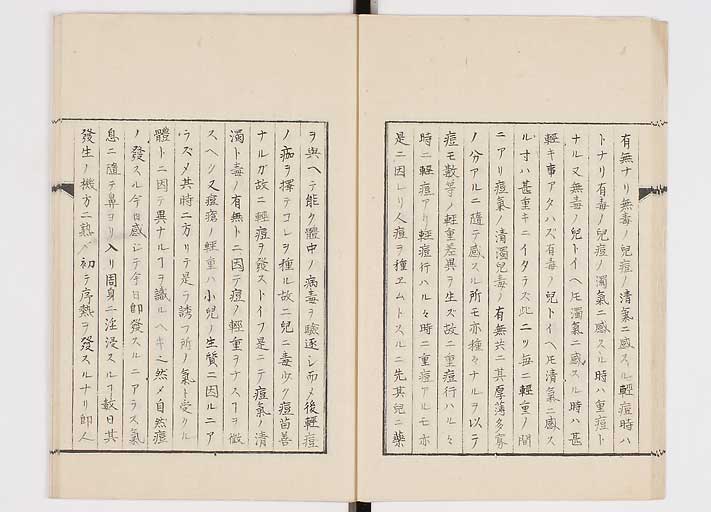 有無ナリ無毒ノ兒痘ノ清氣ニ感スル輕痘時ハ
トナリ有毒ノ兒痘ノ濁氣ニ感スル時ハ重痘ト
ナル又無毒ノ兒トイヘ𪜈濁氣ニ感スル時ハ甚
輕キ事アタハズ有毒ノ兒トイヘ𪜈清氣ニ感ス
ル寸ハ甚重キニイタラズ此二ツ毎ニ輕重ノ間
ニアリ痘氣ノ清濁兒毒ノ有無共ニ其厚薄多寡
ノ分アルニ隨テ感スル所モ亦種々ナルヲ以テ
痘モ數等ノ輕重差異ヲ生ズ故ニ重痘行ハル々
時ニ輕痘アリ輕痘行ハル々時ニ重痘アルモ亦
是ニ因レリ人痘ヲ種ヱムトスルニ先其兒ニ藥
ヲ與ヘテ能ク體中ノ病毒ヲ驅逐シ而メ後輕痘
ノ痂ヲ擇テコレヲ種ル故ニ兒ニ毒少ク痘苗善
ナルガ故ニ輕痘ヲ發ストイフ是ニテ痘氣ノ清
濁ト毒ノ有無トニ因テ痘ノ輕重ヲナスヿヲ徴
スヘク又痘瘡ノ輕重ハ小兒ノ生質ニ因ルニア
ラズメ其時ニ方リテ是ヲ誘フ所ノ氣ト受クル
體トニ因テ異ナルヿヲ識ルヘキ也然メ自然痘
ノ發スル今日感シテ今日即發スルニアラス氣
息ニ隨テ鼻ヨリ入リ周身ニ淫浸スルヿ數日其
發生ノ機方ニ熟ベ初テ序熱ヲ發スルナリ即人